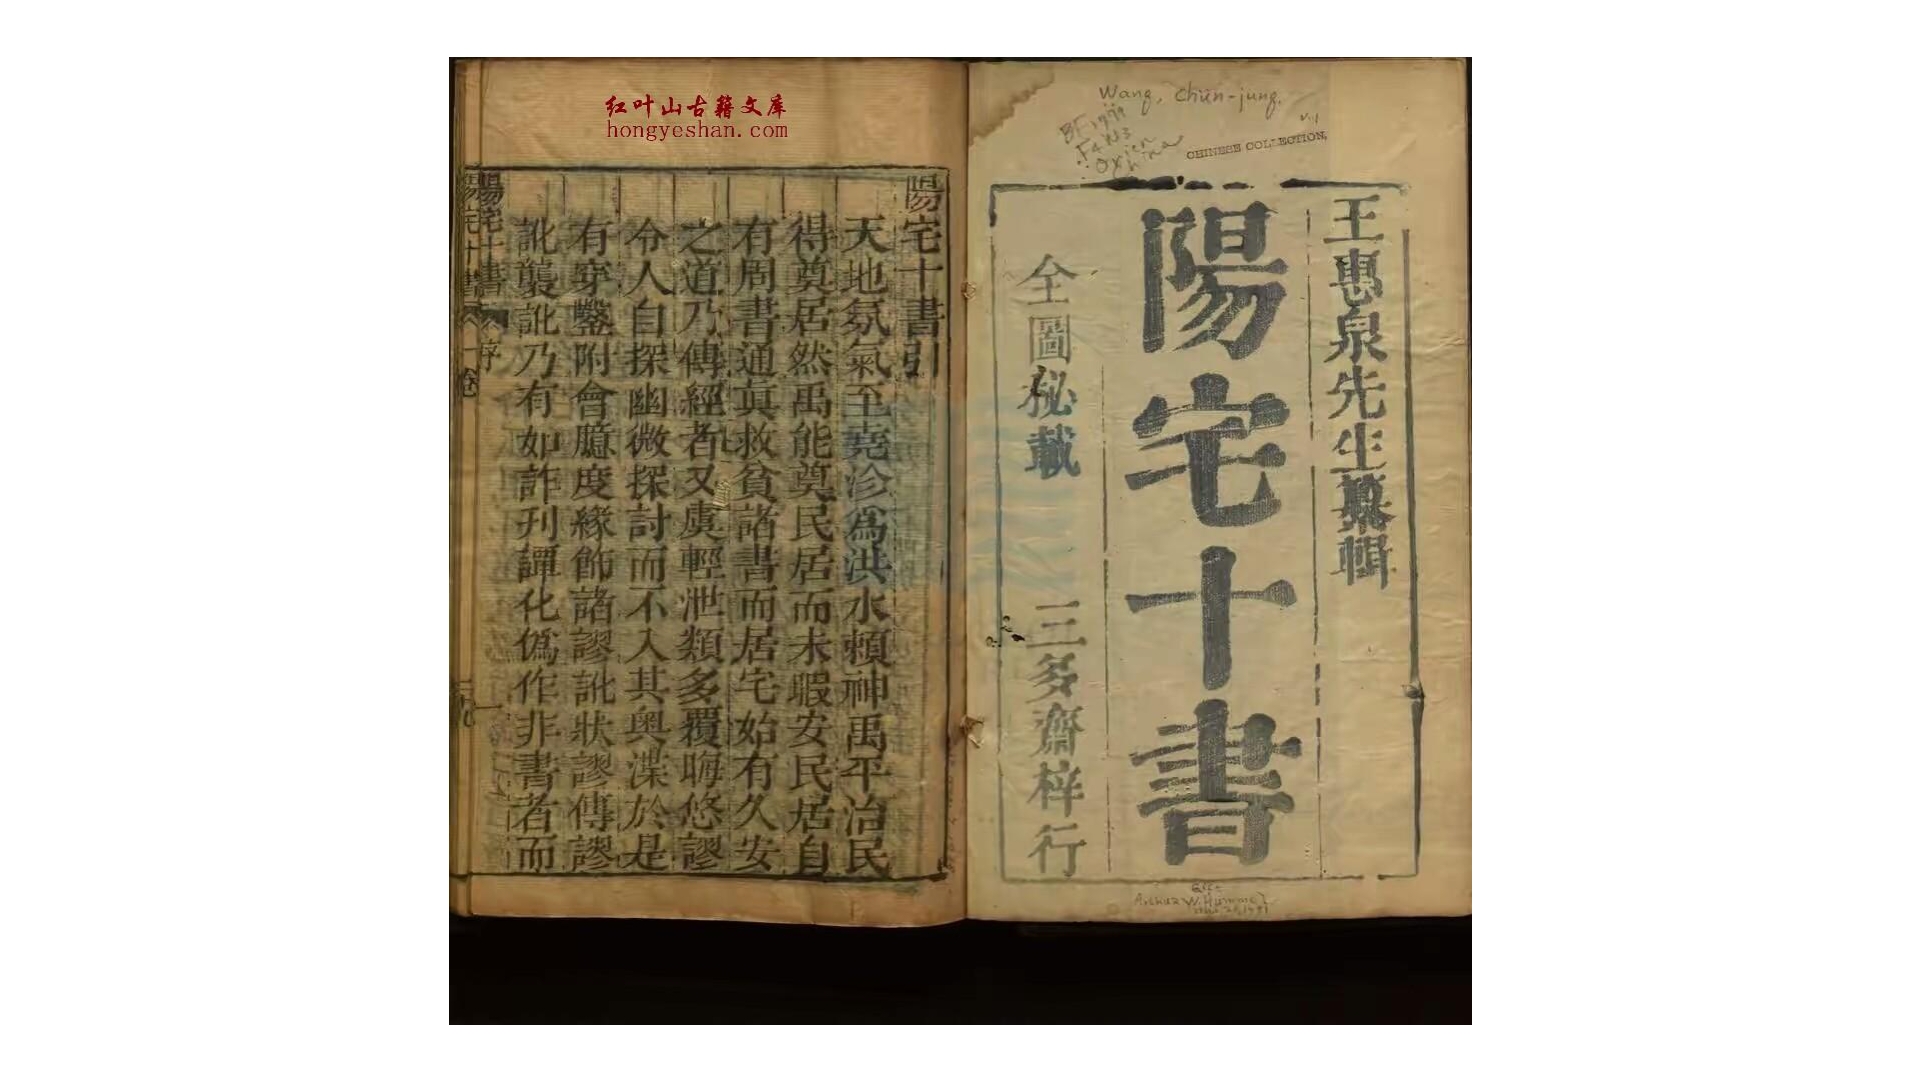 红叶山古籍文库
hongyeshan.com
Wang, Chün-jung.
CHINESE COLLECTION,
王惠泉先生纂輯
陽宅十書
全圖秘載 三多齋梓行
Gift
Arthur W. Hummel
陽宅十書引
天地氛氣至堯沴為洪水賴神禹平治民
得奠居然禹能奠民居而未暇安民居自
有周書通眞救貧諸書而居宅始有久安
之道乃傳經者又虞輕泄類多覆晦悠謬
令人自探幽微探討而不入其奧渫於是
有穿鑿附會臆度緣飾諸謬訛狀謬傳謬
訛襲訛乃有如詐刊譚化僞作非書者而
陽宅十書 序 一
陽宅十書 一卷